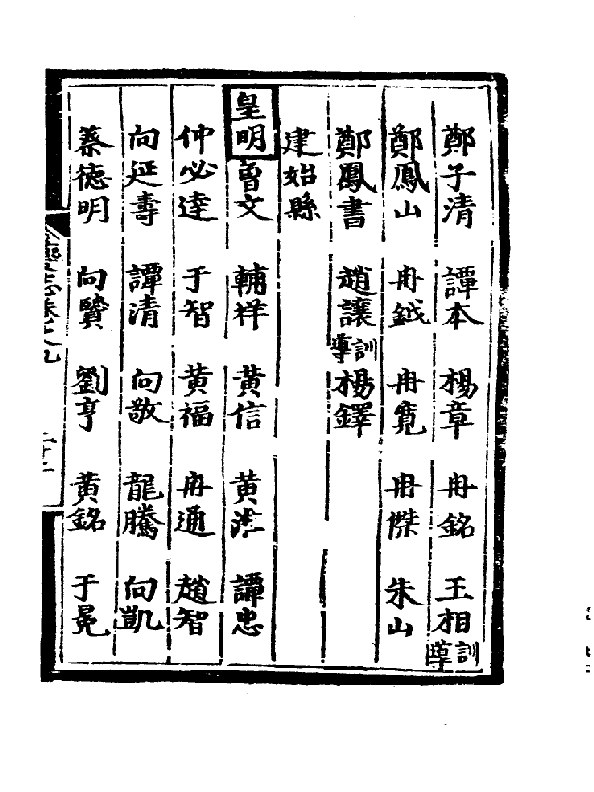 鄭子清 譚本 楊章 冉銘 王相訓導
鄭鳳山 冉鉞 冉寬 冉傑 朱山
鄭鳳書 趙讓訓導 楊鐸
建始縣
皇明 曾文 輔祥 黄信 黄 譚忠
仲必達 于智 黄福 冉通 趙智
向延壽 譚清 向敬 龍騰 向凱
蔡德明 向賢 劉亨 黄銘 于冕
志卷之九